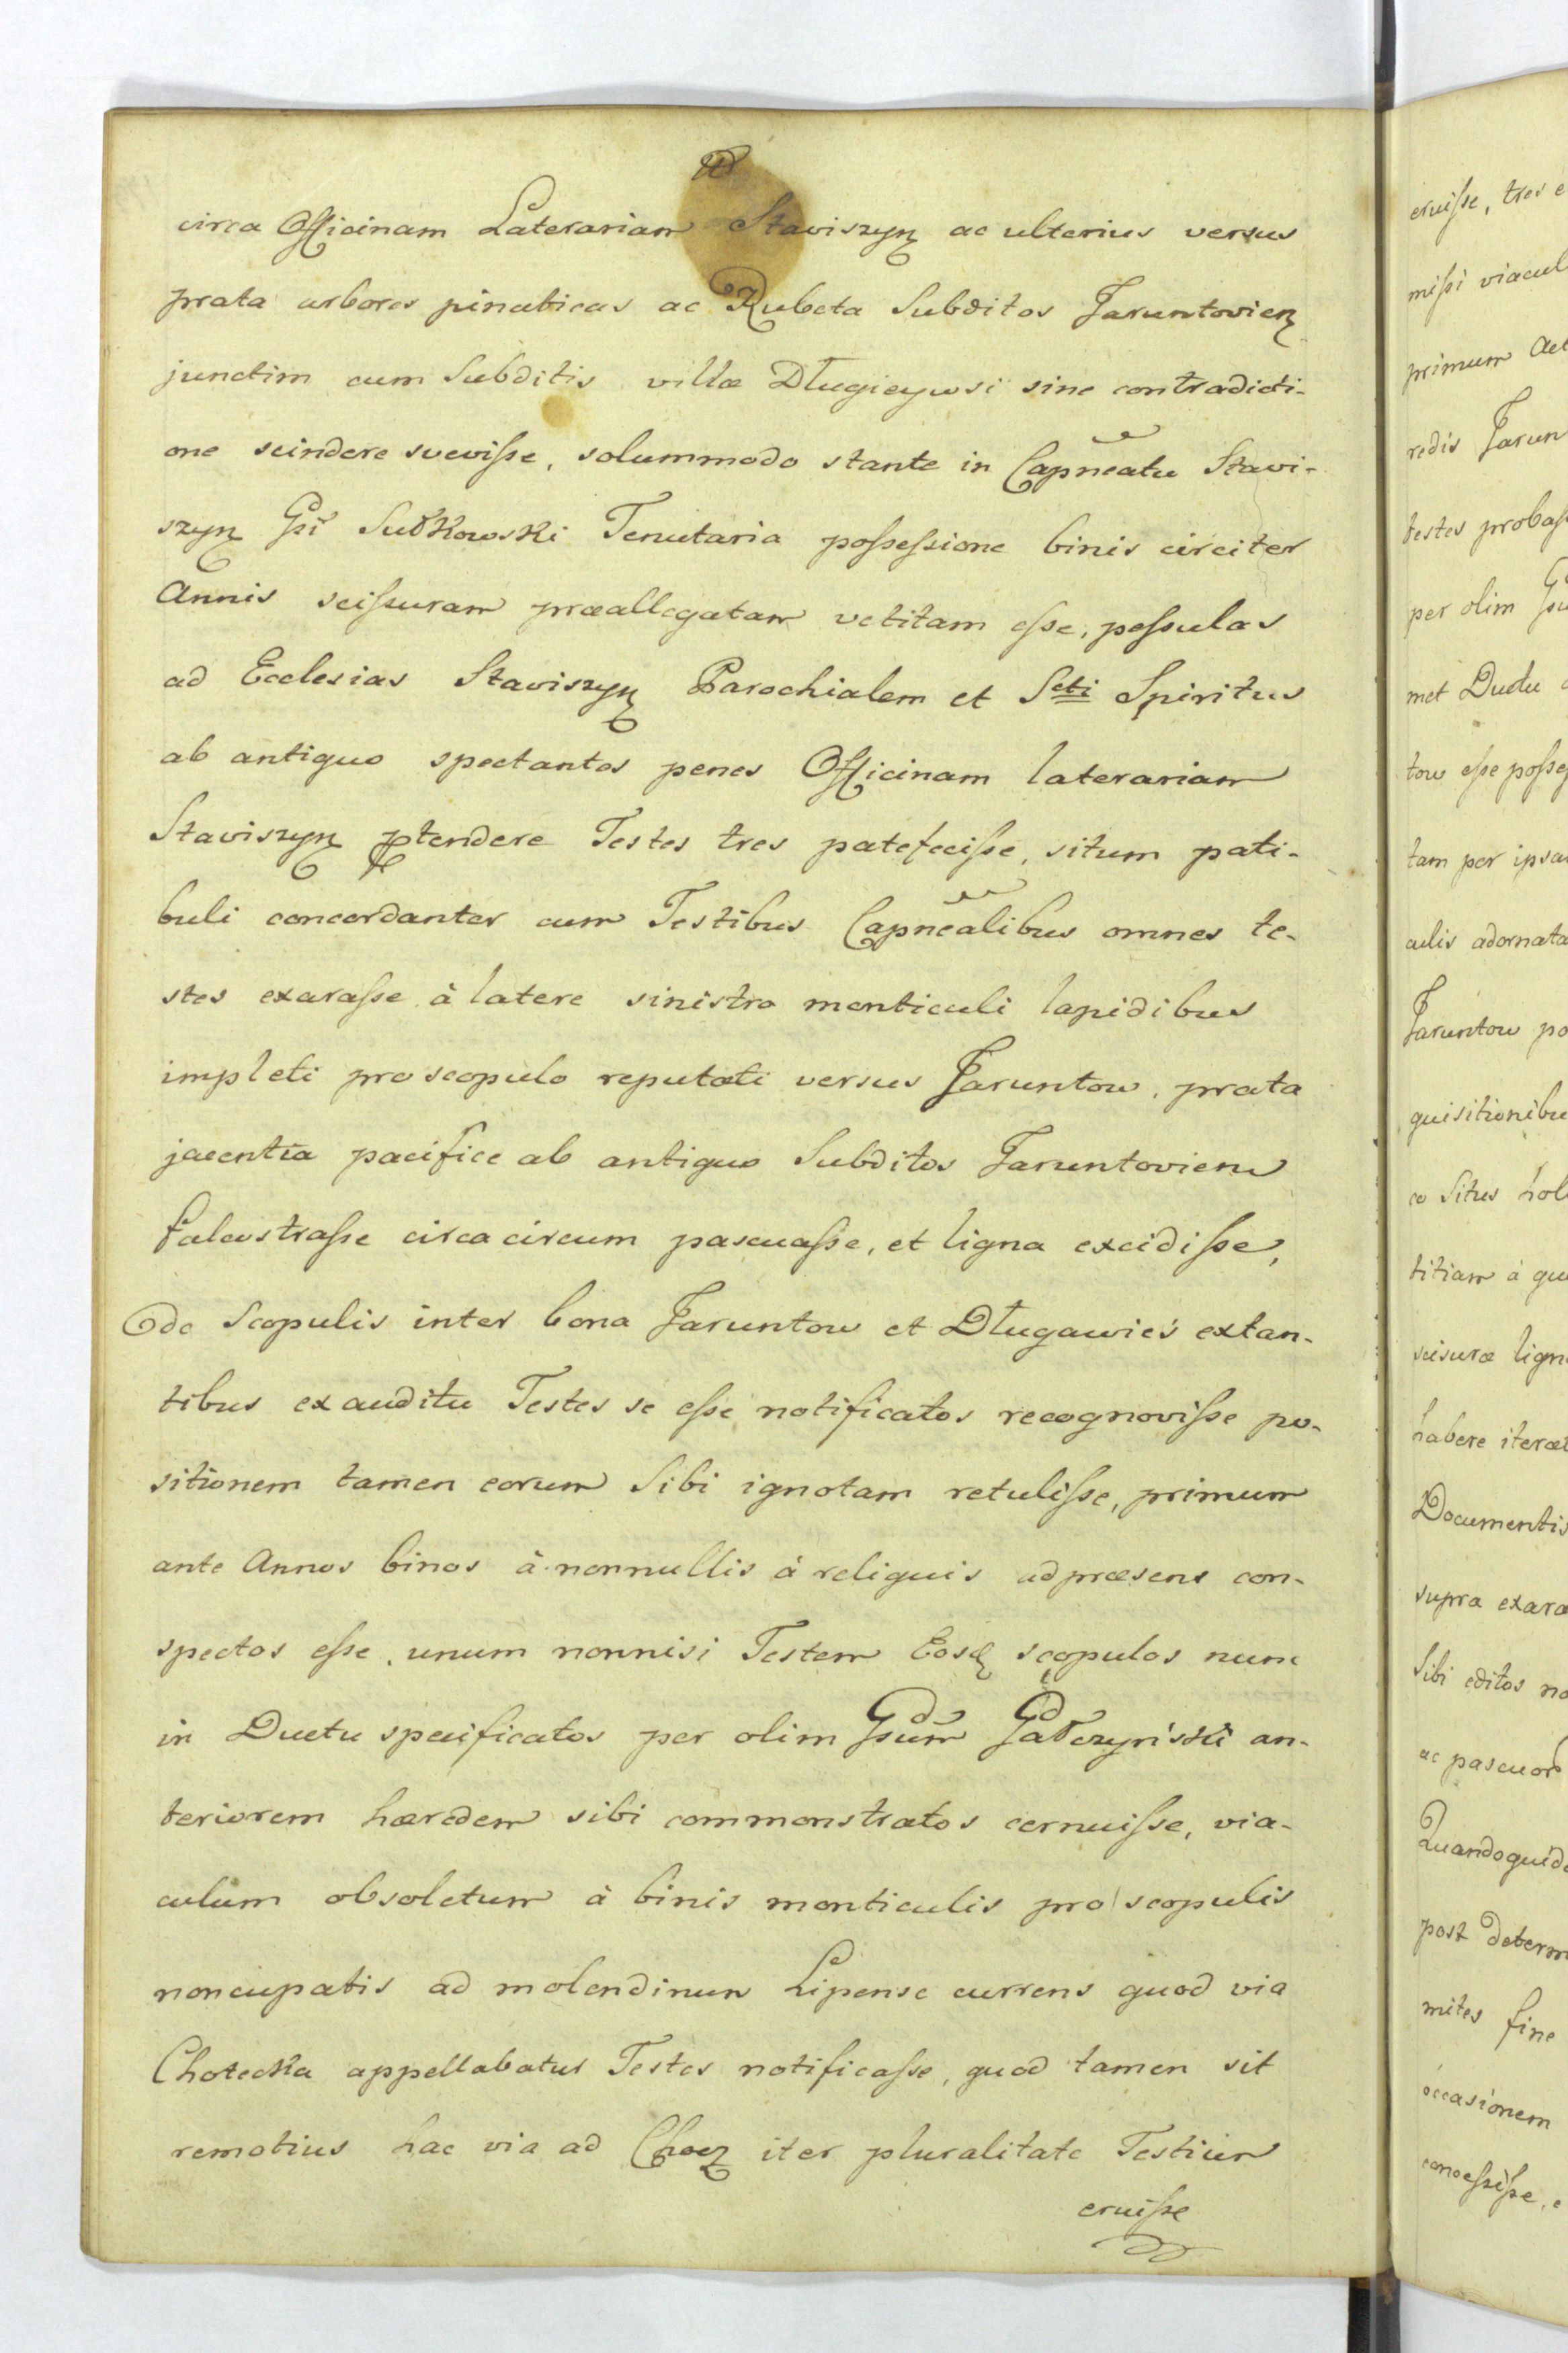 circa Officinam Laterariam Staviszyn ac ulterius versus
prata arbores pineabicas ac Rubeta Subditos Jaruntovien
junctim cum Subditis villæ Długieywsi sine contradicti-
one scindere svevisse, solummodo stante in Capneatu Stavi-
szyn Gsi Sułkowski Tenutaria possessione binis circiter
Annis scissuram præallegatam vetitam esse, possulas
ad Ecclesias Staviszyn Parochialem et Scti Spiritus
ab antiquo spectantes penes Officinam laterariam
Staviszyn ptendere Testes tres patefecisse, situm pati-
buli concordanter cum Testibus Capnealibus omnes te-
stes exarasse à latere sinistro monticuli lapidibus
impleti pro scopulo reputati versus Jaruntow, prata
jacentia pacifice ab antiquo Subditos Jaruntovien
falcastrasse circa circum pascuasse, et ligna excidisse,
de Scopulis inter bona Jaruntow et Długawieś extan-
tibus ex auditu Testes se esse notificatos recognovisse po-
sitionem tamen eorum Sibi ignotam retulisse, primum
ante Annos binos à nonnullis á reliquis ad præsens con-
spectos esse, unum nonnisi Testem Eosd scopulos nunc
in Ductu specificatos per olim Gsum Gałczyński an-
teriorem hæredem sibi commonstratos cernuisse, via-
culum obsoletum à binis monticulis pro scopulis
noncupatis ad molendinum Lipense currens quod via
Chotecka appellabatur Testes notificasse, quod tamen sit
remotius hac via ad Chocz iter pluralitate Testium
eruisse
eruisse, tres
missi viacul
primum
redis Jarun
testes probas
per olim
met Ductu
tow esse posses
tam per ipsa
culis adornata
Jaruntow po
quisitionibu
co Situs
titiam à qu
scisuræ lign
habere iterat
Documentis
supra exara
Sibi editos no
ac pascuor
Quandoquide
post determ
mites fine
occasionem
concessisse,